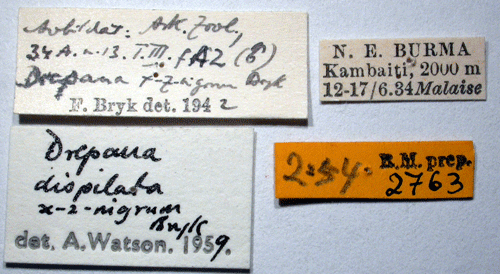 Avbildat: Ark. Zool,
34 A. n:13. T. III. f A2 (6)
Drepana x-z-nigrum Bryk
F. Bryk det. 1942
N. E. BURMA
Kambaiti, 2000 m
12-17/6.34 Malaise
Drepana
dispilata
x-z-nigrum
Bryk
det. A. Watson. 1959.
2:54. B.M. prep.
2763